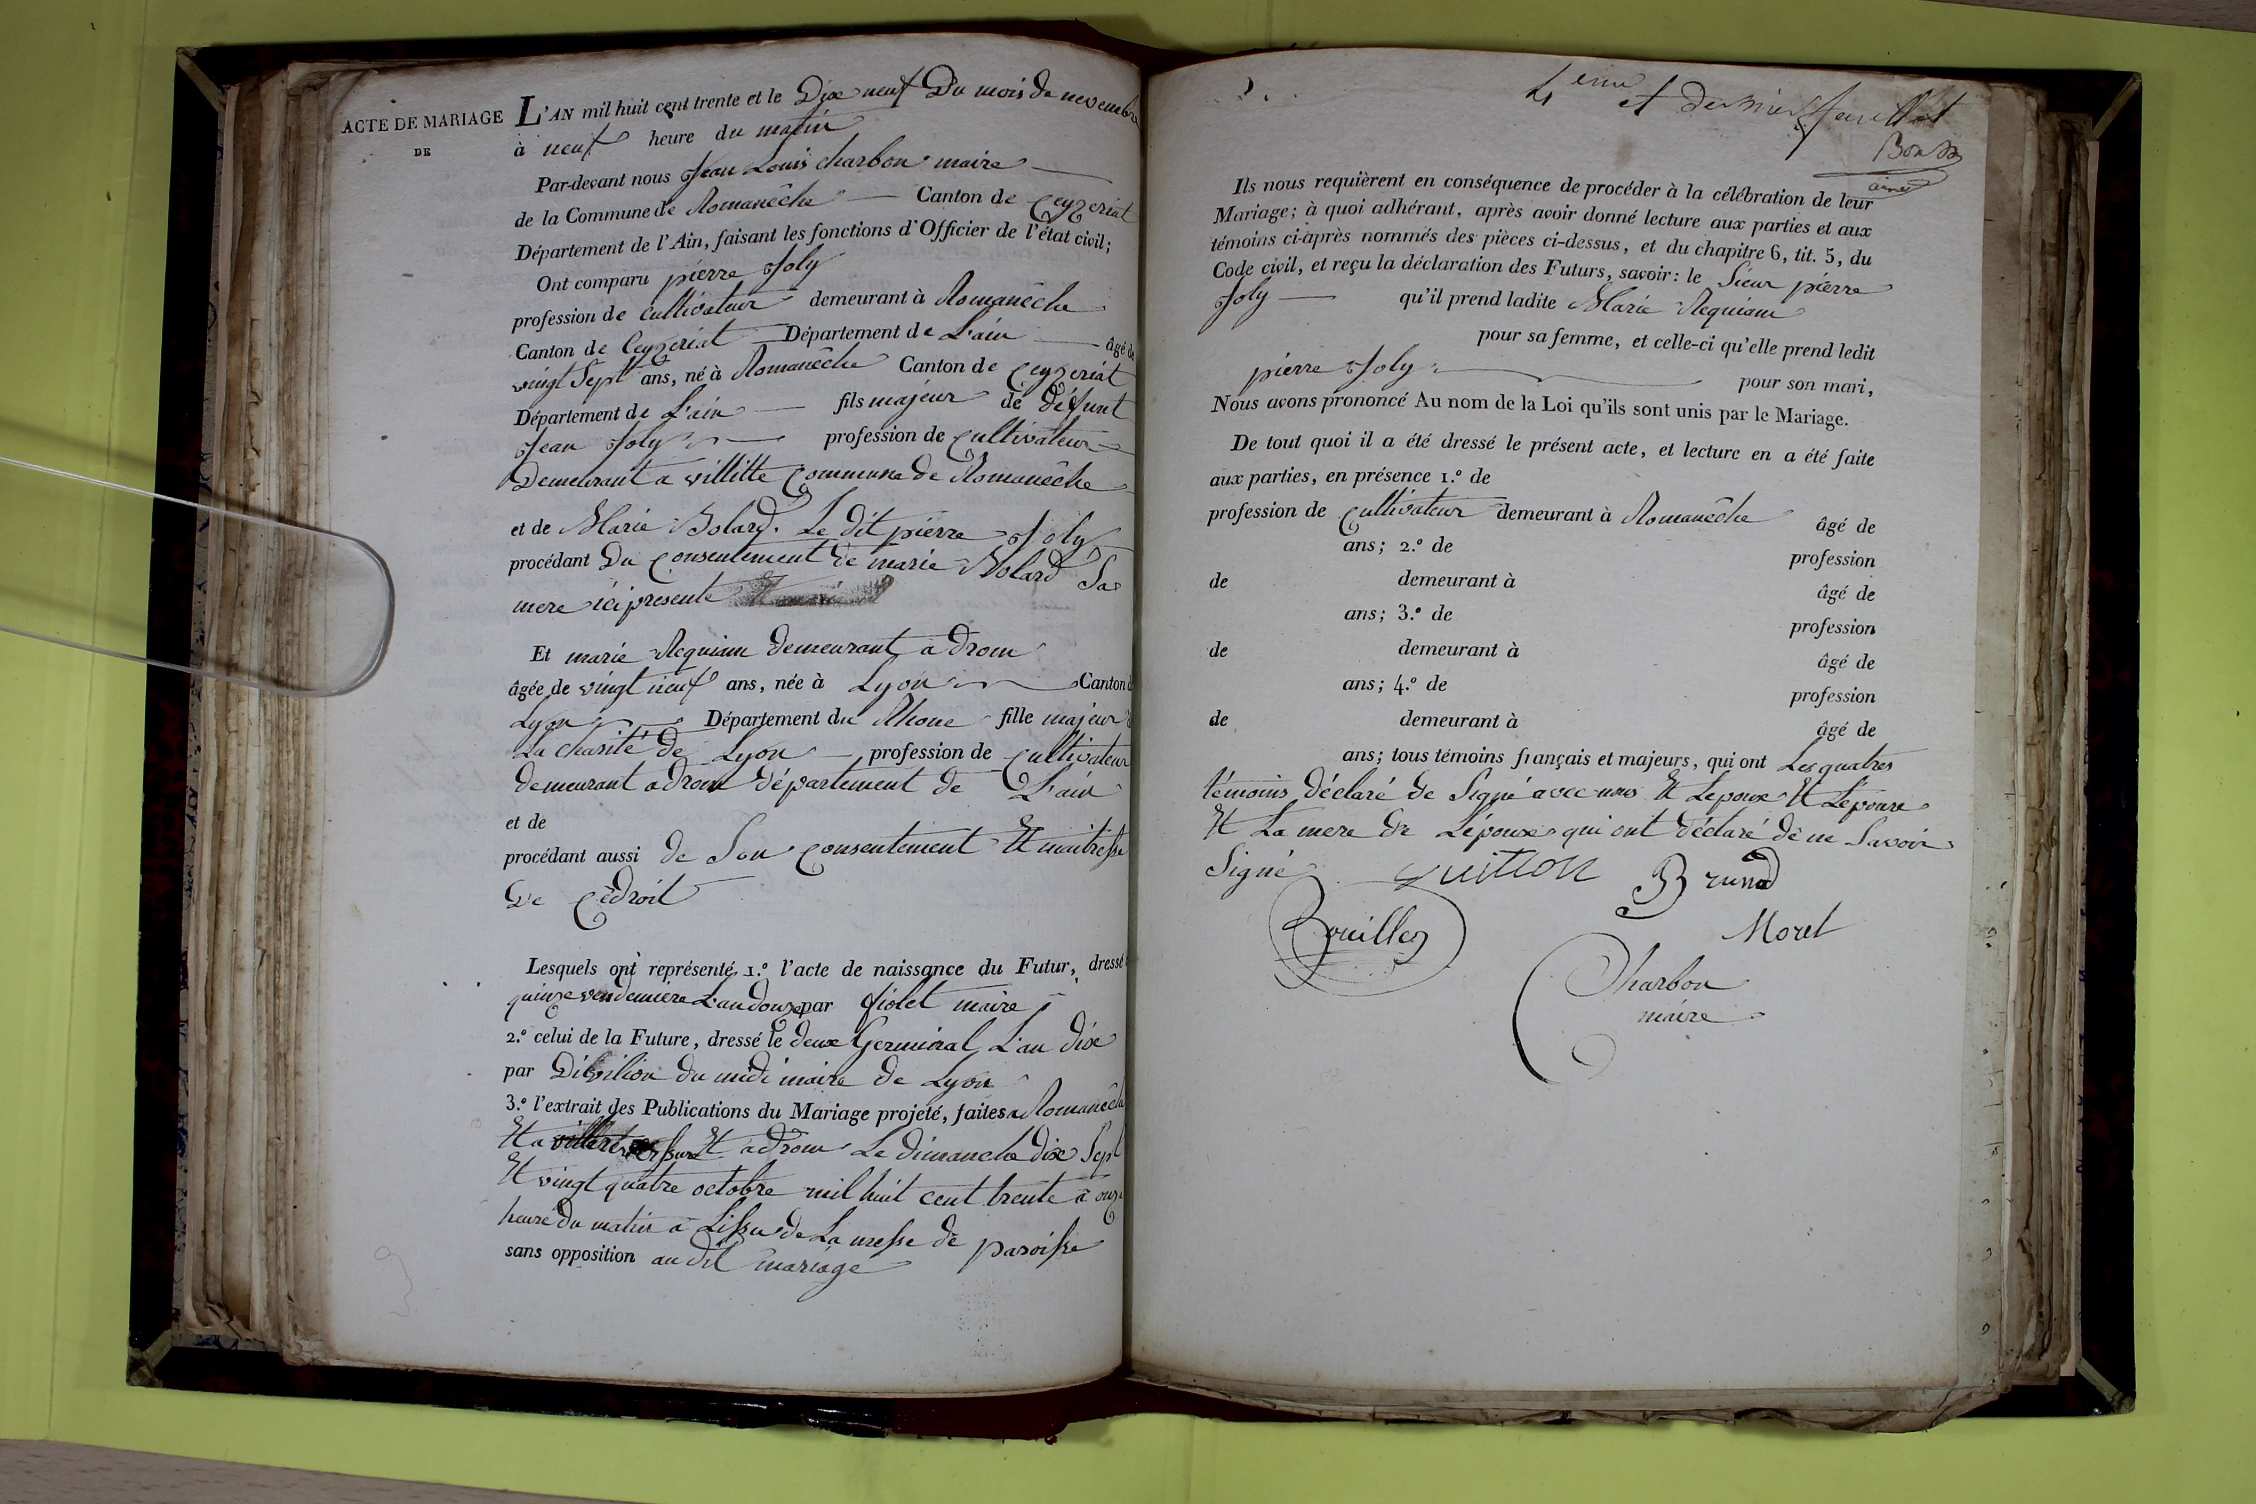 ACTE DE MARIAGE
DE
L'AN mil huit cent trente et le Dix neuf Du mois de novembre
à neuf heure du matin
Par-devant nous Jean Louis charbon maire
de la Commune de Romanêche Canton de Ceyzeriat
Département de l'Ain, faisant les fonctions d'Officier de l'état civil;
Ont comparu pierre Joly
profession de cultivateur demeurant à Romanêche
Canton de Ceyzeriat Département de L'ain âgé de
vingt Sept ans, né à Romanêche Canton de Ceyzeriat
Département de L'ain fils majeur de défunt
Jean Joly profession de Cultivateur
Demeurant a villitte Commune de Romanêche
et de Marie Bolard. Le dit pierre Joly
procédant Du Consentement de marie Bolard Sa
mere ici presente
Et marie Requiam demeurant a drom
âgée de vingt neuf ans, née à Lyon Canton d
Lyon Département du Rhone fille majeur
La charité de Lyon profession de Cultivateur
demeurant a drom département de L'ain
et de
procédant aussi de Son Consentement Et maitresse
De Cedroit
Lesquels ont représenté 1.º l'acte de naissance du Futur, dressé
quinze vendemiere L'an douze par fiolet maire
2.º celui de la Future, dressé le deux Germinal L'an dix
par Divilion du midi maire de Lyon
3.º l'extrait des Publications du Mariage projeté, faites a Romanêche
Et a Et a Drom Le dimanche dix Sept
Et vingt quatre octobre mil huit cent trente à onze
heure du matin a Lissu de La messe de paroisse
sans opposition au dit mariage
4eme et dernier feuillet
ainé
Ils nous requièrent en conséquence de procéder à la célébration de leur
Mariage; à quoi adhérant, après avoir donné lecture aux parties et aux
témoins ci-après nommés des pièces ci-dessus, et du chapitre 6, tit. 5, du
Code civil, et reçu la déclaration des Futurs, savoir: le Sieur pierre
Joly qu'il prend ladite Marie Requiam
pour sa femme, et celle-ci qu'elle prend ledit
pierre Joly pour son mari,
Nous avons prononcé Au nom de la Loi qu'ils sont unis par le Mariage.
De tout quoi il a été dressé le présent acte, et lecture en a été faite
aux parties, en présence 1.º de
profession de Cultivateur demeurant à Romanêche âgé de
ans; 2.º de profession
de demeurant à âgé de
ans; 3.º de profession
de demeurant à âgé de
ans; 4.º de profession
de demeurant à âgé de
ans; tous témoins français et majeurs, qui ont Les quatres
témoins déclaré de Signé avec nous Et Lepoux Et Lépouse
Et La mere de Lépoux qui ont déclaré de ne Savoir
Signé Guitton Brund
Bouillez Moret
Charbon
maire